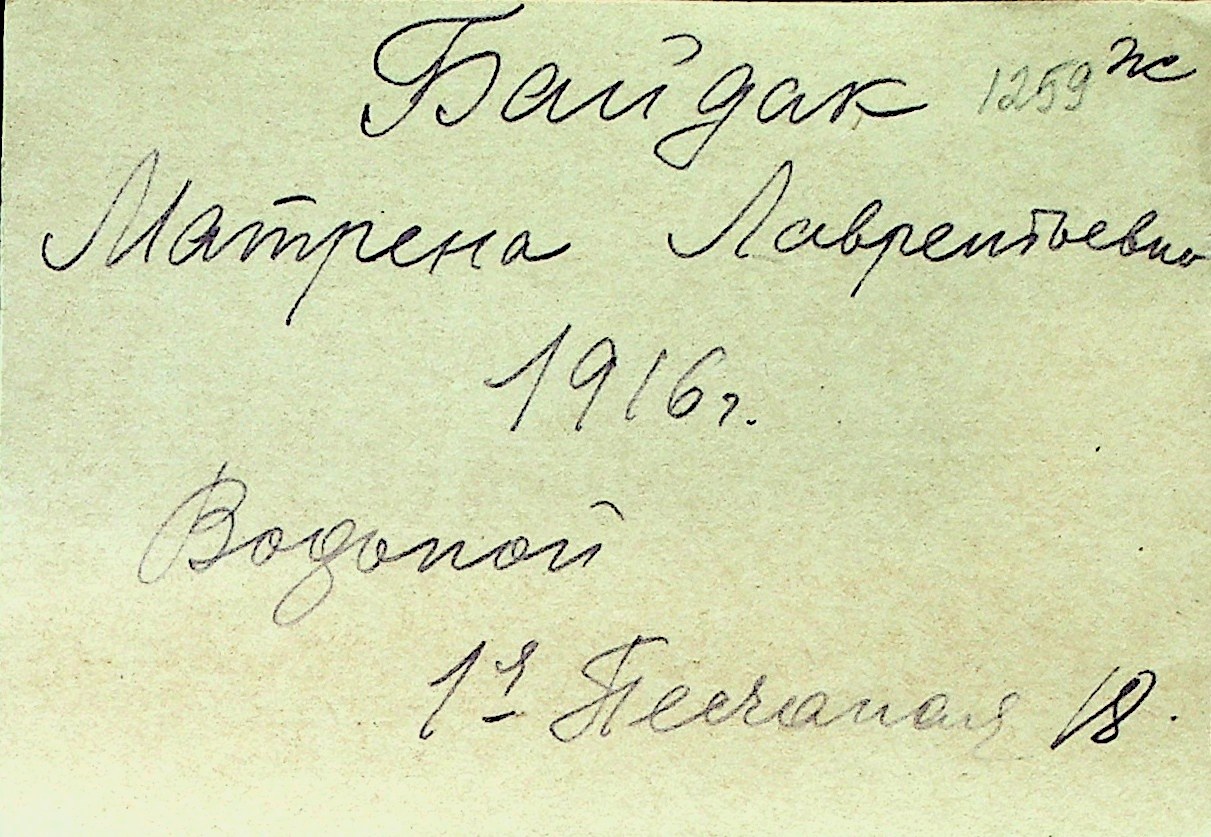 Байдак 1259 ж
Матрена Лаврентьевна
1916 г.
Водопой
1я Песчаная 18.